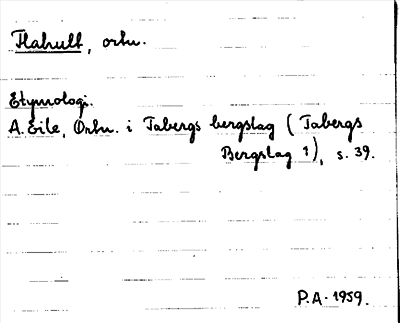 Flahult, ortn.
Etymologi.
A. Eile, Ortn. i Tabergs bergslag (Tabergs
Bergslag 1), s. 39.
P.A. 1959.